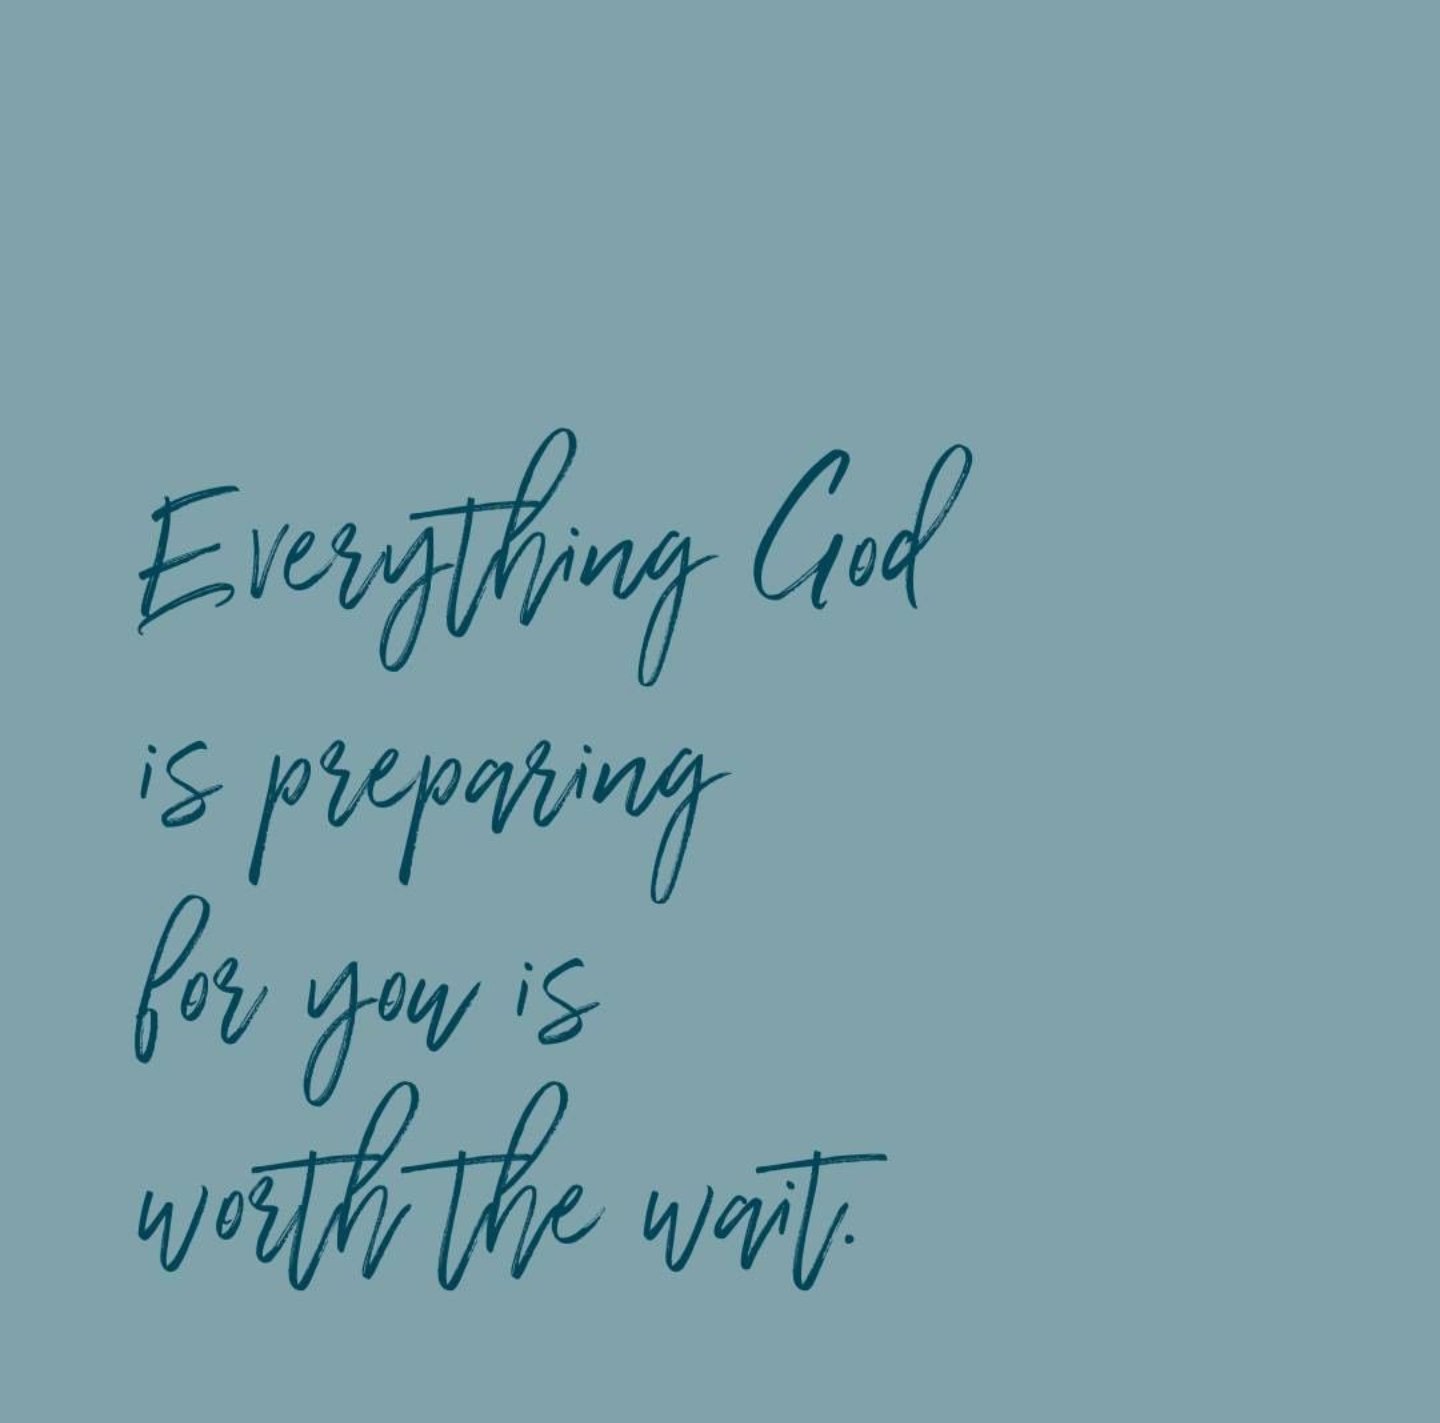 Everything God
is preparing
for you is
worth the wait.